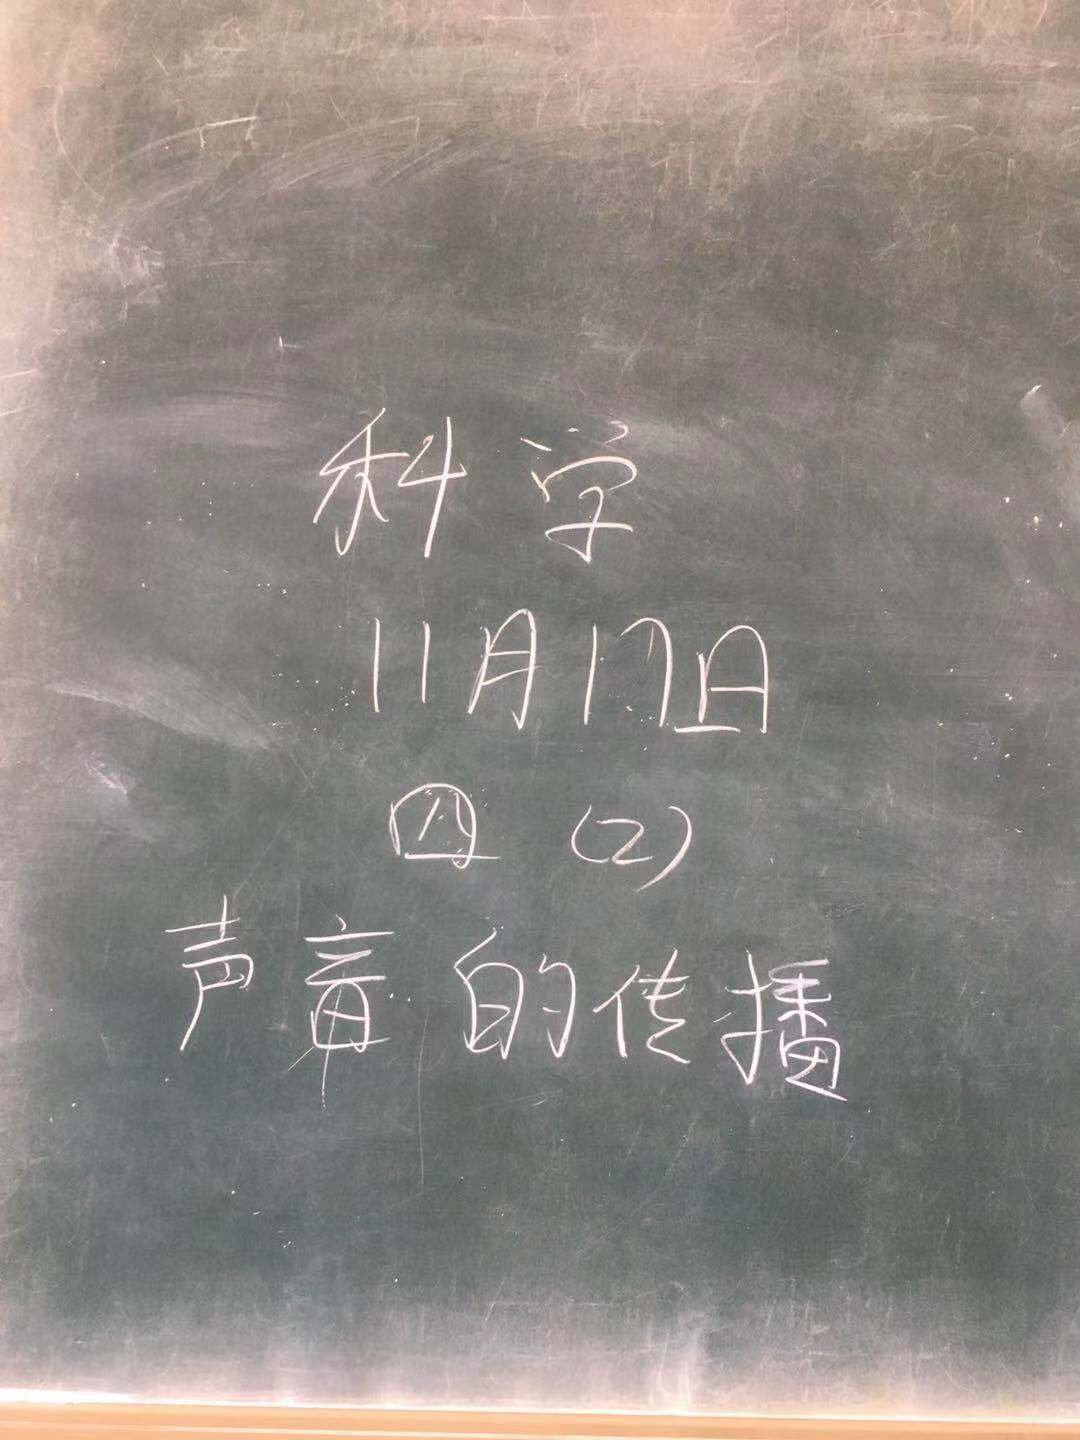 科学
11月17日
四（2）
声音的传播